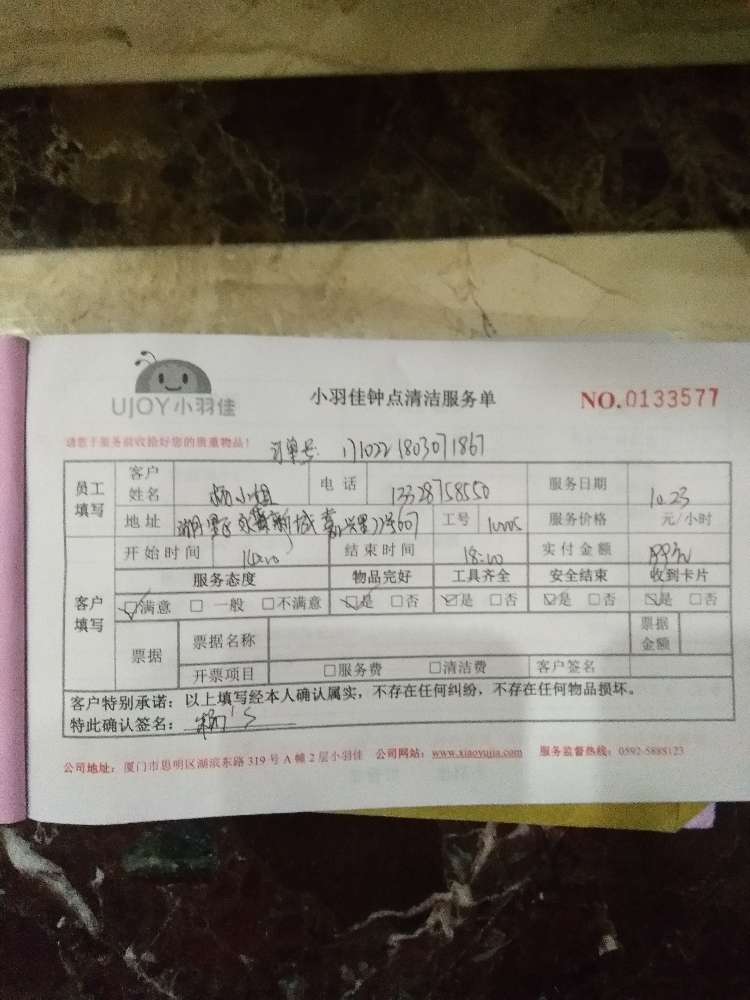 UJOY小羽佳
小羽佳钟点清洁服务单
NO.0133577
请您于服务前收拾好您的贵重物品!
订单号: 1710221803071867
员工填写 客户姓名 杨小姐 电话 13328758550 服务日期 10.23
地址 新城 22号607 工号 服务价格 元/小时
开始时间 14:00 结束时间 18:00 实付金额
客户填写 服务态度 物品完好 工具齐全 安全结束 收到卡片
☑满意 □一般 □不满意 ☑是 □否 ☑是 □否 ☑是 □否 ☑是 □否
票据 票据名称 票据金额
开票项目 □服务费 □清洁费 客户签名
客户特别承诺:以上填写经本人确认属实,不存在任何纠纷,不存在任何物品损坏。
特此确认签名: 杨's
公司地址:厦门市思明区湖滨东路319号A幢2层小羽佳 公司网站:www.xiaoyujia.com 服务监督热线:0592-5888123